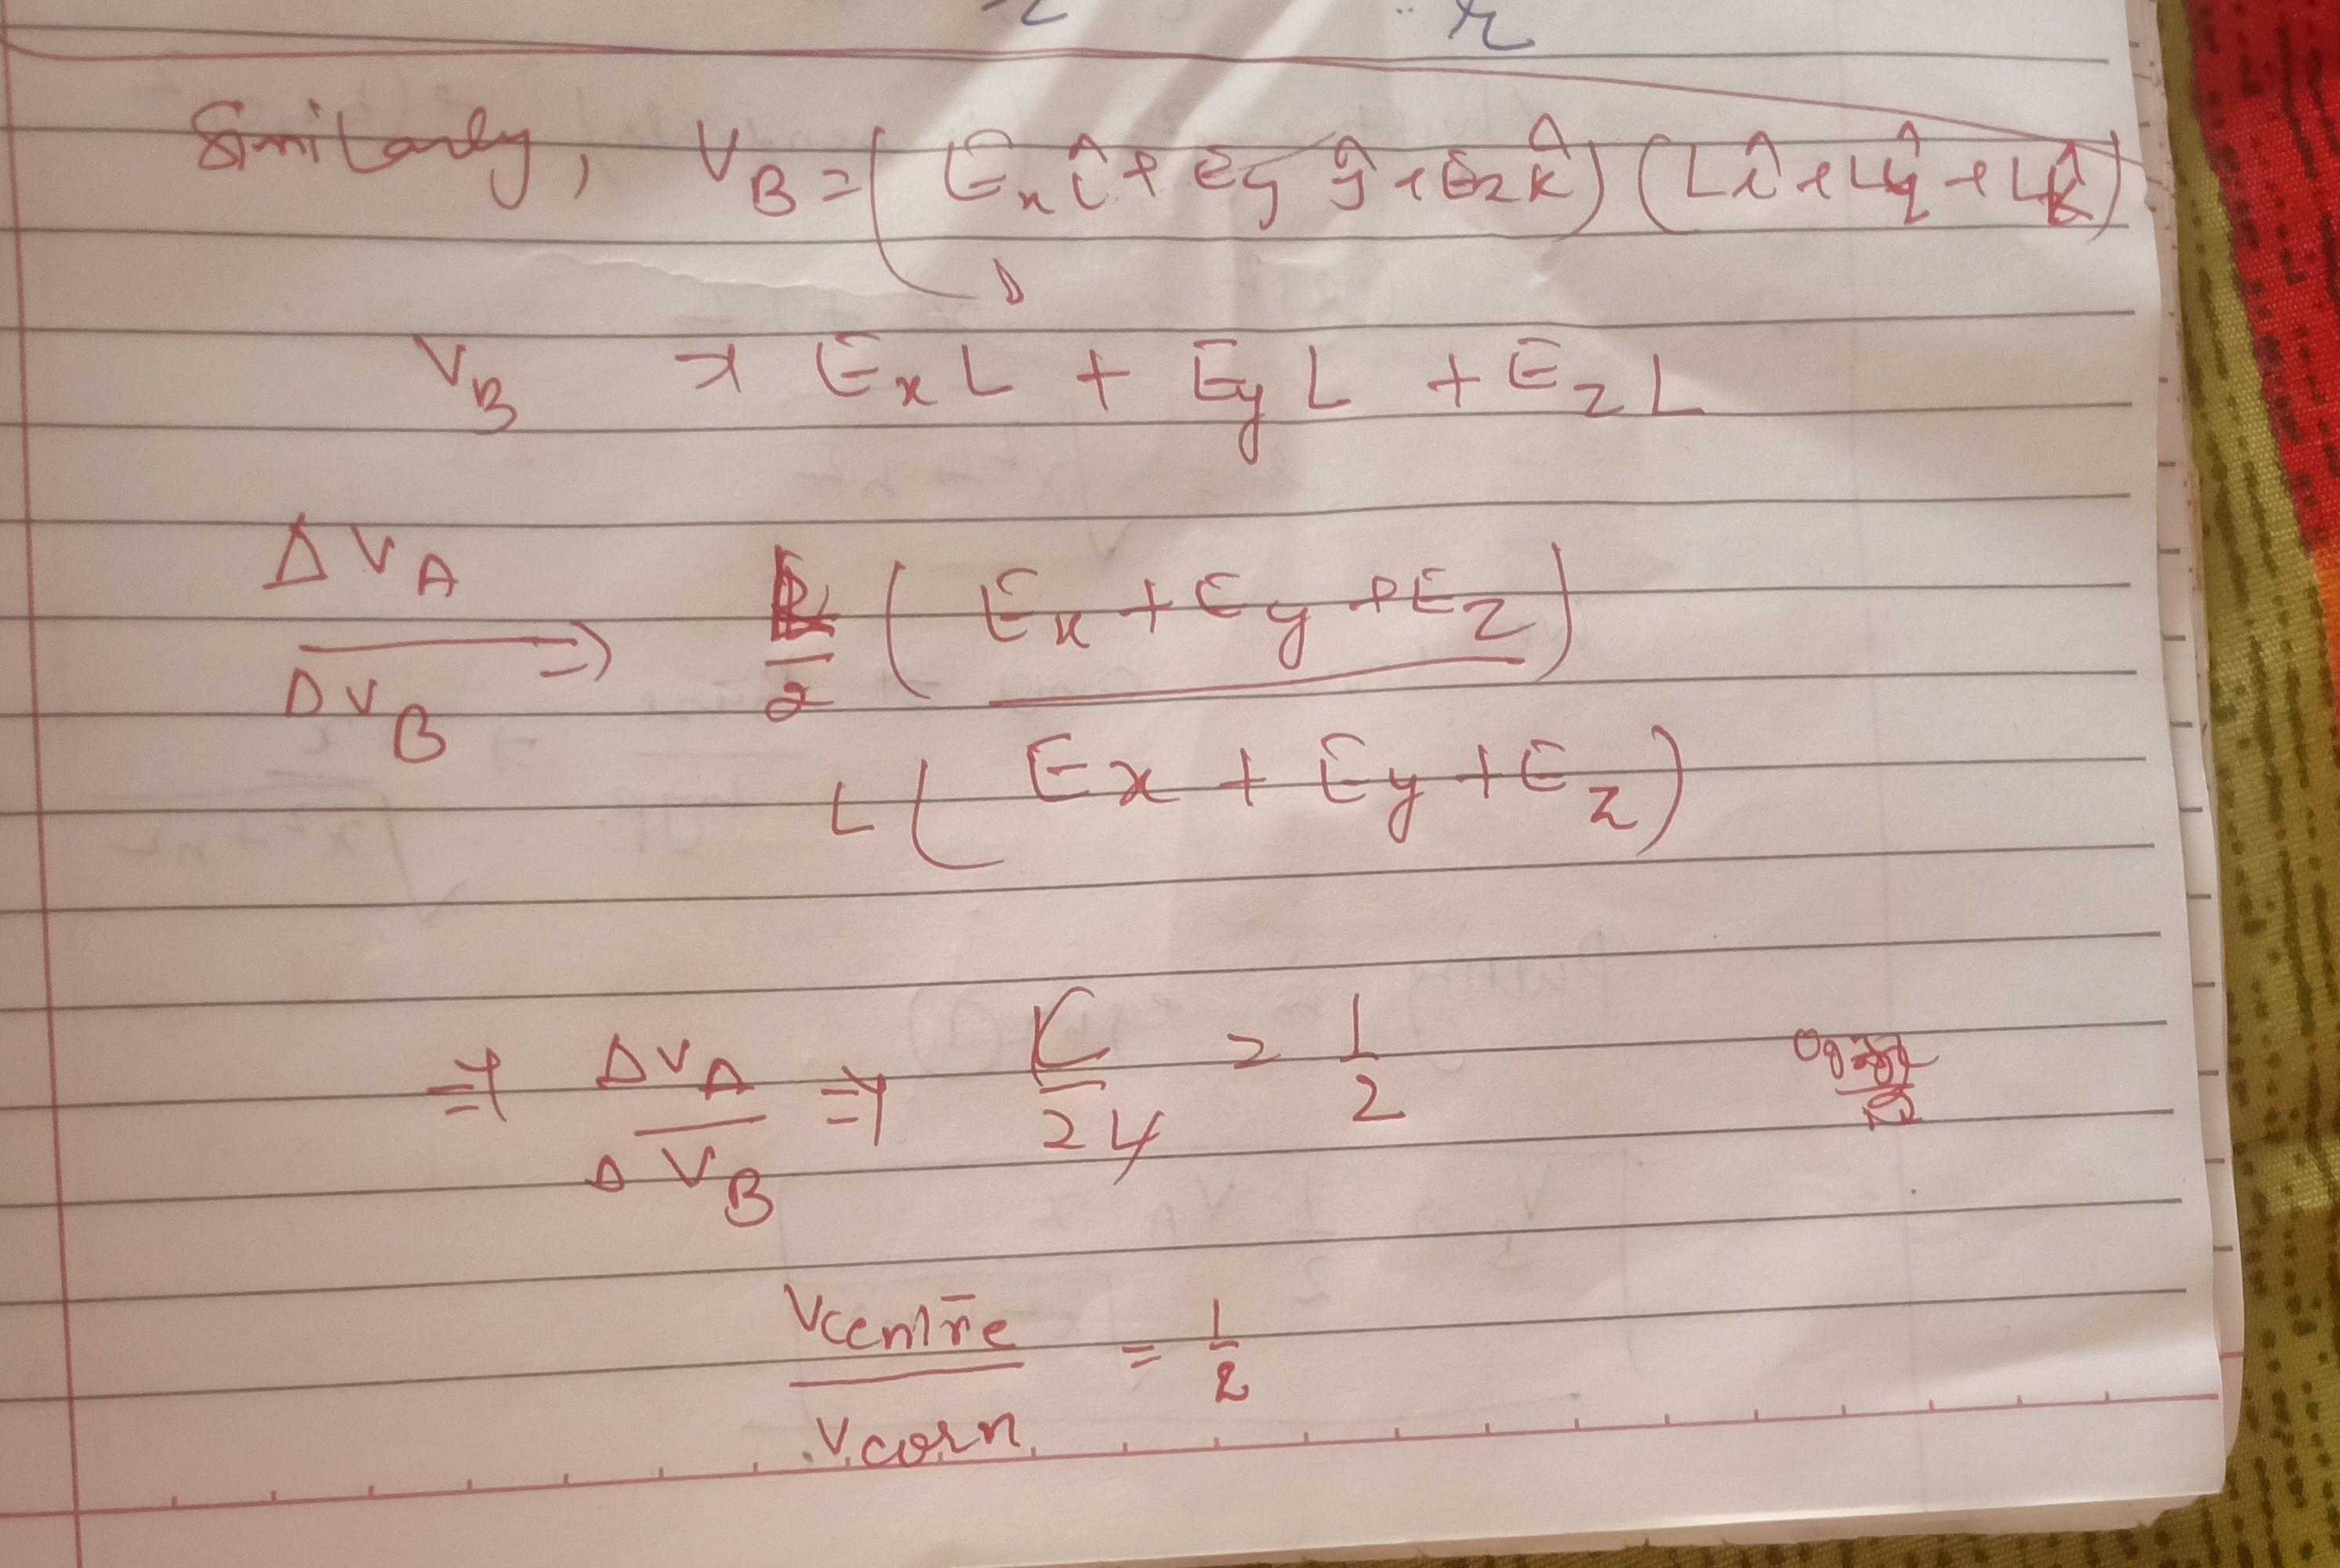 Similarly, V_B = (E_x î + E_y ĵ + E_z k̂) (L î + L ĵ + L k̂)
V_B ⇒ E_x L + E_y L + E_z L
ΔV_A / ΔV_B ⇒ L/2 (E_x + E_y + E_z) / L (E_x + E_y + E_z)
⇒ ΔV_A / ΔV_B ⇒ L / 2L = 1/2
V centre / V corn = 1/2